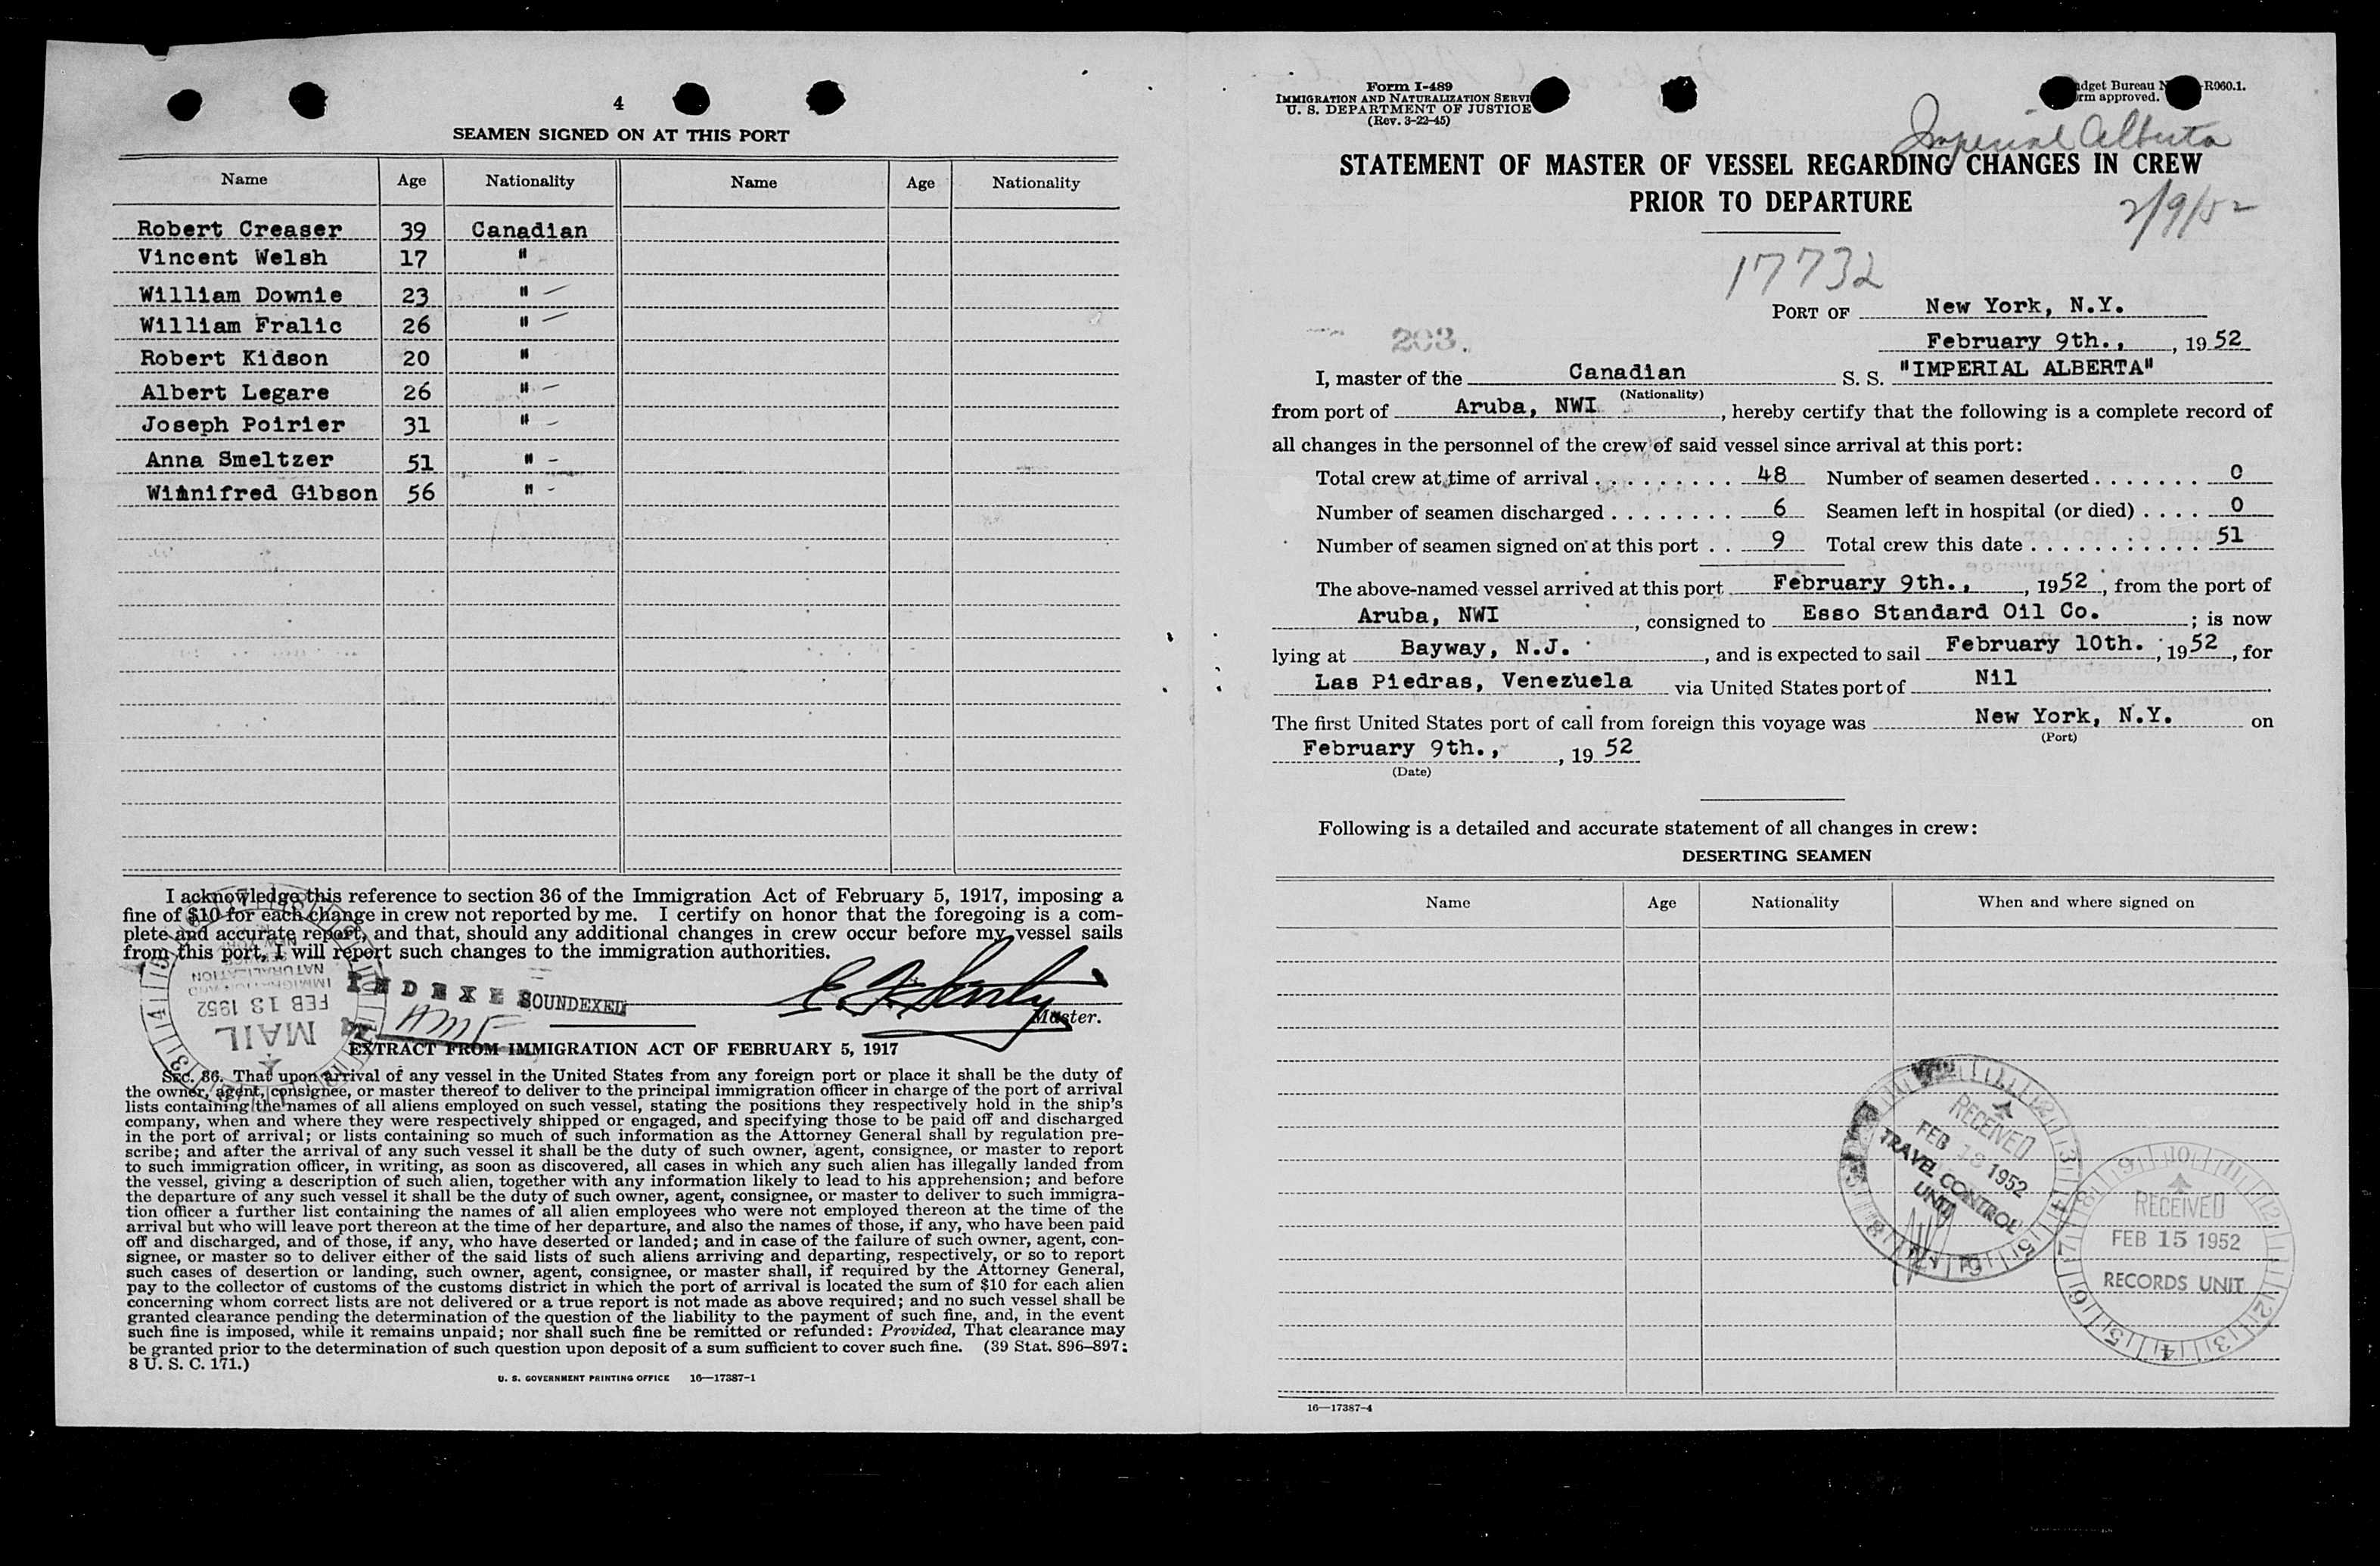 4
SEAMEN SIGNED ON AT THIS PORT
Name Age Nationality Name Age Nationality
Robert Creaser 39 Canadian
Vincent Welsh 17 "
William Downie 23 "
William Fralic 26 "
Robert Kidson 20 "
Albert Legare 26 "
Joseph Poirier 31 "
Anna Smeltzer 51 "
Winnifred Gibson 56 "
I acknowledge this reference to section 36 of the Immigration Act of February 5, 1917, imposing a
fine of $10 for each change in crew not reported by me. I certify on honor that the foregoing is a com-
plete and accurate report, and that, should any additional changes in crew occur before my vessel sails
from this port, I will report such changes to the immigration authorities.
INDEXED
SOUNDEXED
Master.
MAIL
FEB 13 1952
IMMIGRATION AND
NATURALIZATION
EXTRACT FROM IMMIGRATION ACT OF FEBRUARY 5, 1917
Sec. 36. That upon arrival of any vessel in the United States from any foreign port or place it shall be the duty of
the owner, agent, consignee, or master thereof to deliver to the principal immigration officer in charge of the port of arrival
lists containing the names of all aliens employed on such vessel, stating the positions they respectively hold in the ship's
company, when and where they were respectively shipped or engaged, and specifying those to be paid off and discharged
in the port of arrival; or lists containing so much of such information as the Attorney General shall by regulation pre-
scribe; and after the arrival of any such vessel it shall be the duty of such owner, agent, consignee, or master to report
to such immigration officer, in writing, as soon as discovered, all cases in which any such alien has illegally landed from
the vessel, giving a description of such alien, together with any information likely to lead to his apprehension; and before
the departure of any such vessel it shall be the duty of such owner, agent, consignee, or master to deliver to such immigra-
tion officer a further list containing the names of all alien employees who were not employed thereon at the time of the
arrival but who will leave port thereon at the time of her departure, and also the names of those, if any, who have been paid
off and discharged, and of those, if any, who have deserted or landed; and in case of the failure of such owner, agent, con-
signee, or master so to deliver either of the said lists of such aliens arriving and departing, respectively, or so to report
such cases of desertion or landing, such owner, agent, consignee, or master shall, if required by the Attorney General,
pay to the collector of customs of the customs district in which the port of arrival is located the sum of $10 for each alien
concerning whom correct lists are not delivered or a true report is not made as above required; and no such vessel shall be
granted clearance pending the determination of the question of the liability to the payment of such fine, and, in the event
such fine is imposed, while it remains unpaid; nor shall such fine be remitted or refunded: Provided, That clearance may
be granted prior to the determination of such question upon deposit of a sum sufficient to cover such fine. (39 Stat. 896–897;
8 U. S. C. 171.)
U. S. GOVERNMENT PRINTING OFFICE 16—17387-1
Form I-489
IMMIGRATION AND NATURALIZATION SERVI
U. S. DEPARTMENT OF JUSTICE
(Rev. 3-22-45)
dget Bureau N R060.1.
rm approved.
Imperial Alberta
STATEMENT OF MASTER OF VESSEL REGARDING CHANGES IN CREW
PRIOR TO DEPARTURE
2/9/52
17732
PORT OF New York, N.Y.
203.
February 9th., , 19 52
I, master of the Canadian S. S. "IMPERIAL ALBERTA"
(Nationality)
from port of Aruba, NWI , hereby certify that the following is a complete record of
all changes in the personnel of the crew of said vessel since arrival at this port:
Total crew at time of arrival . . . . . . . . . 48 Number of seamen deserted . . . . . . . 0
Number of seamen discharged . . . . . . . . 6 Seamen left in hospital (or died) . . . . 0
Number of seamen signed on at this port . . 9 Total crew this date . . . . . . . . . . . 51
The above-named vessel arrived at this port February 9th., , 1952 , from the port of
Aruba, NWI , consigned to Esso Standard Oil Co. ; is now
lying at Bayway, N.J. , and is expected to sail February 10th. , 1952 , for
Las Piedras, Venezuela via United States port of Nil
The first United States port of call from foreign this voyage was New York, N.Y. on
(Port)
February 9th., , 19 52
(Date)
Following is a detailed and accurate statement of all changes in crew:
DESERTING SEAMEN
Name Age Nationality When and where signed on
RECEIVED
FEB 18 1952
TRAVEL CONTROL
UNIT
RECEIVED
FEB 15 1952
RECORDS UNIT
16—17387-4